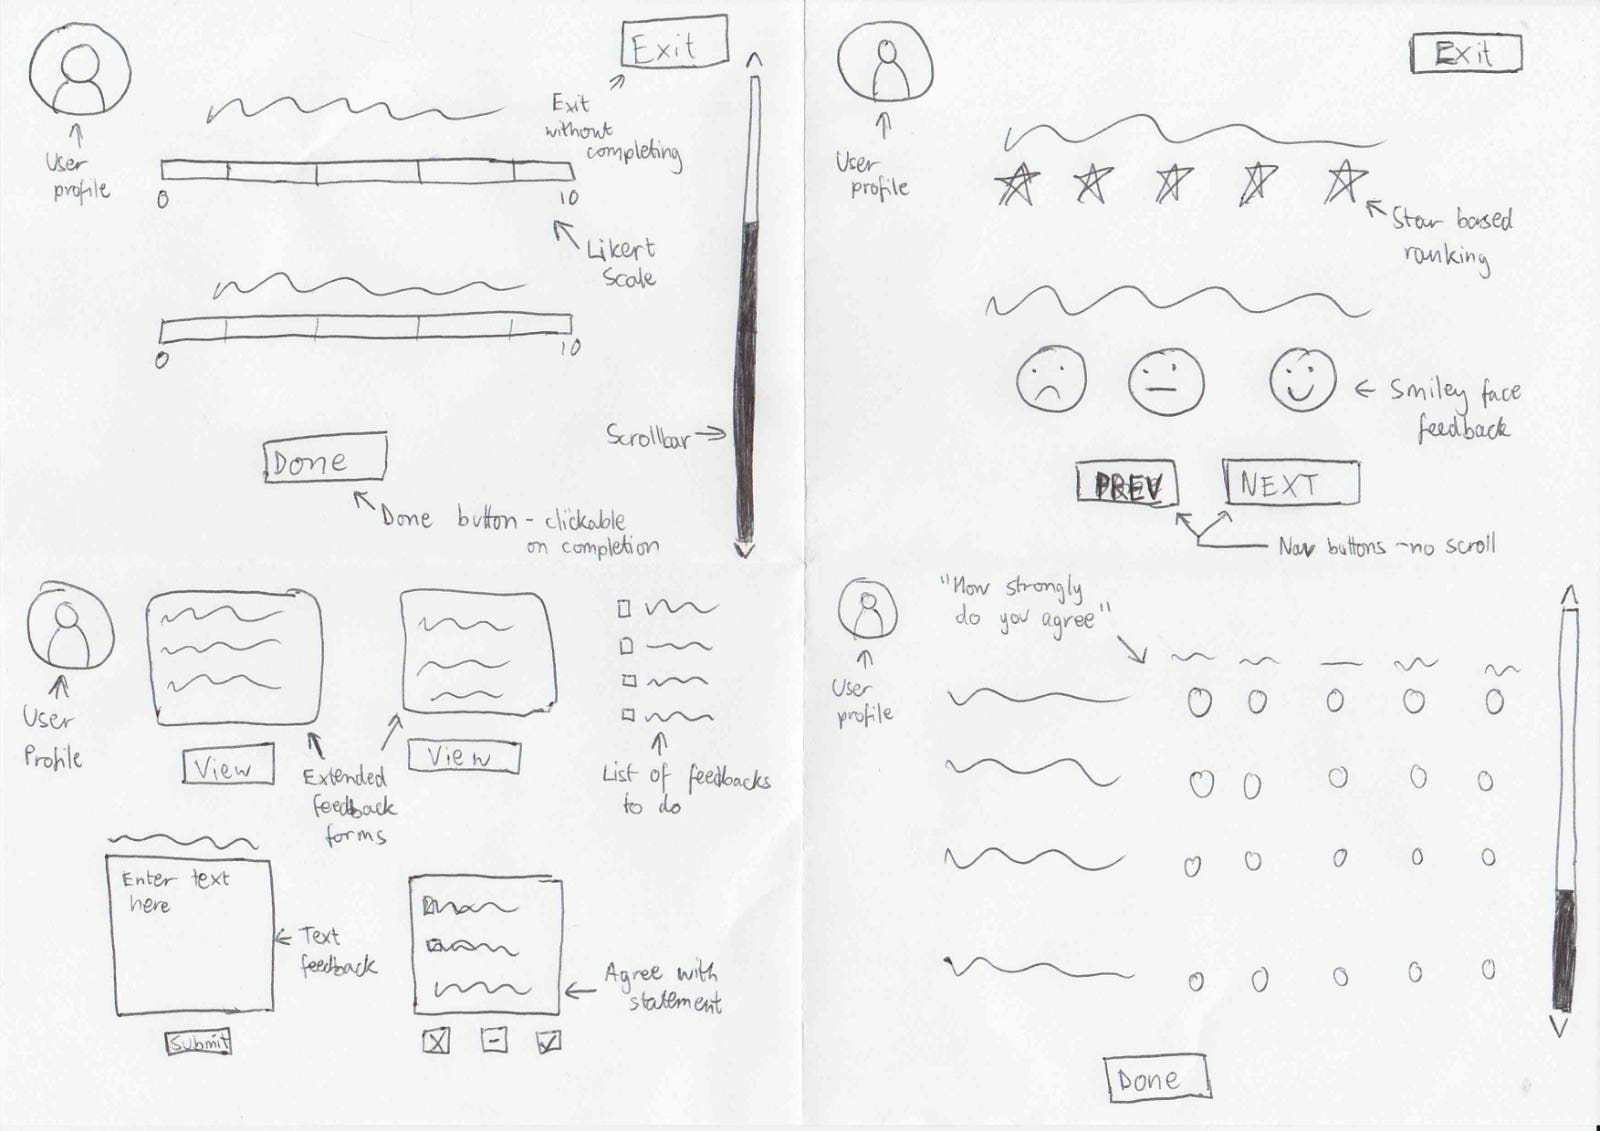 Exit
Exit
without
completing
User
profile
0
10
Likert
Scale
0
10
Scrollbar
Done
Done button - clickable
on completion
Exit
User
profile
Star based
ranking
Smiley face
feedback
PREV
NEXT
Nav buttons - no scroll
User
Profile
View
View
Extended
feedback
forms
List of feedbacks
to do
Enter text
here
Text
feedback
Submit
Agree with
statement
"How strongly
do you agree"
User
profile
Done